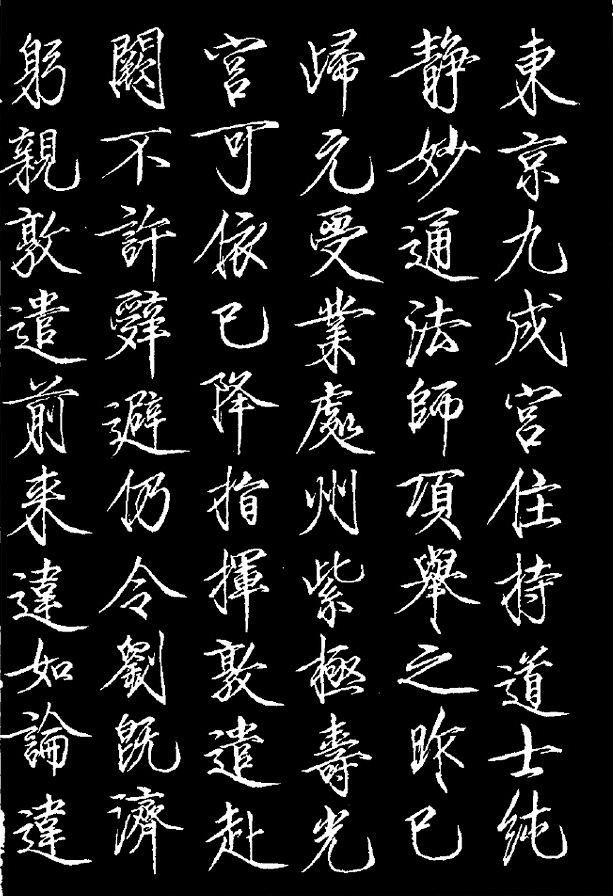 東京九成宮住持道士純
静妙通法師項舉之昨已
歸元受業處州紫極壽光
宮可依已降指揮敦遣赴
闕不許辭避仍令劉既濟
躬親敦遣前来違如論違